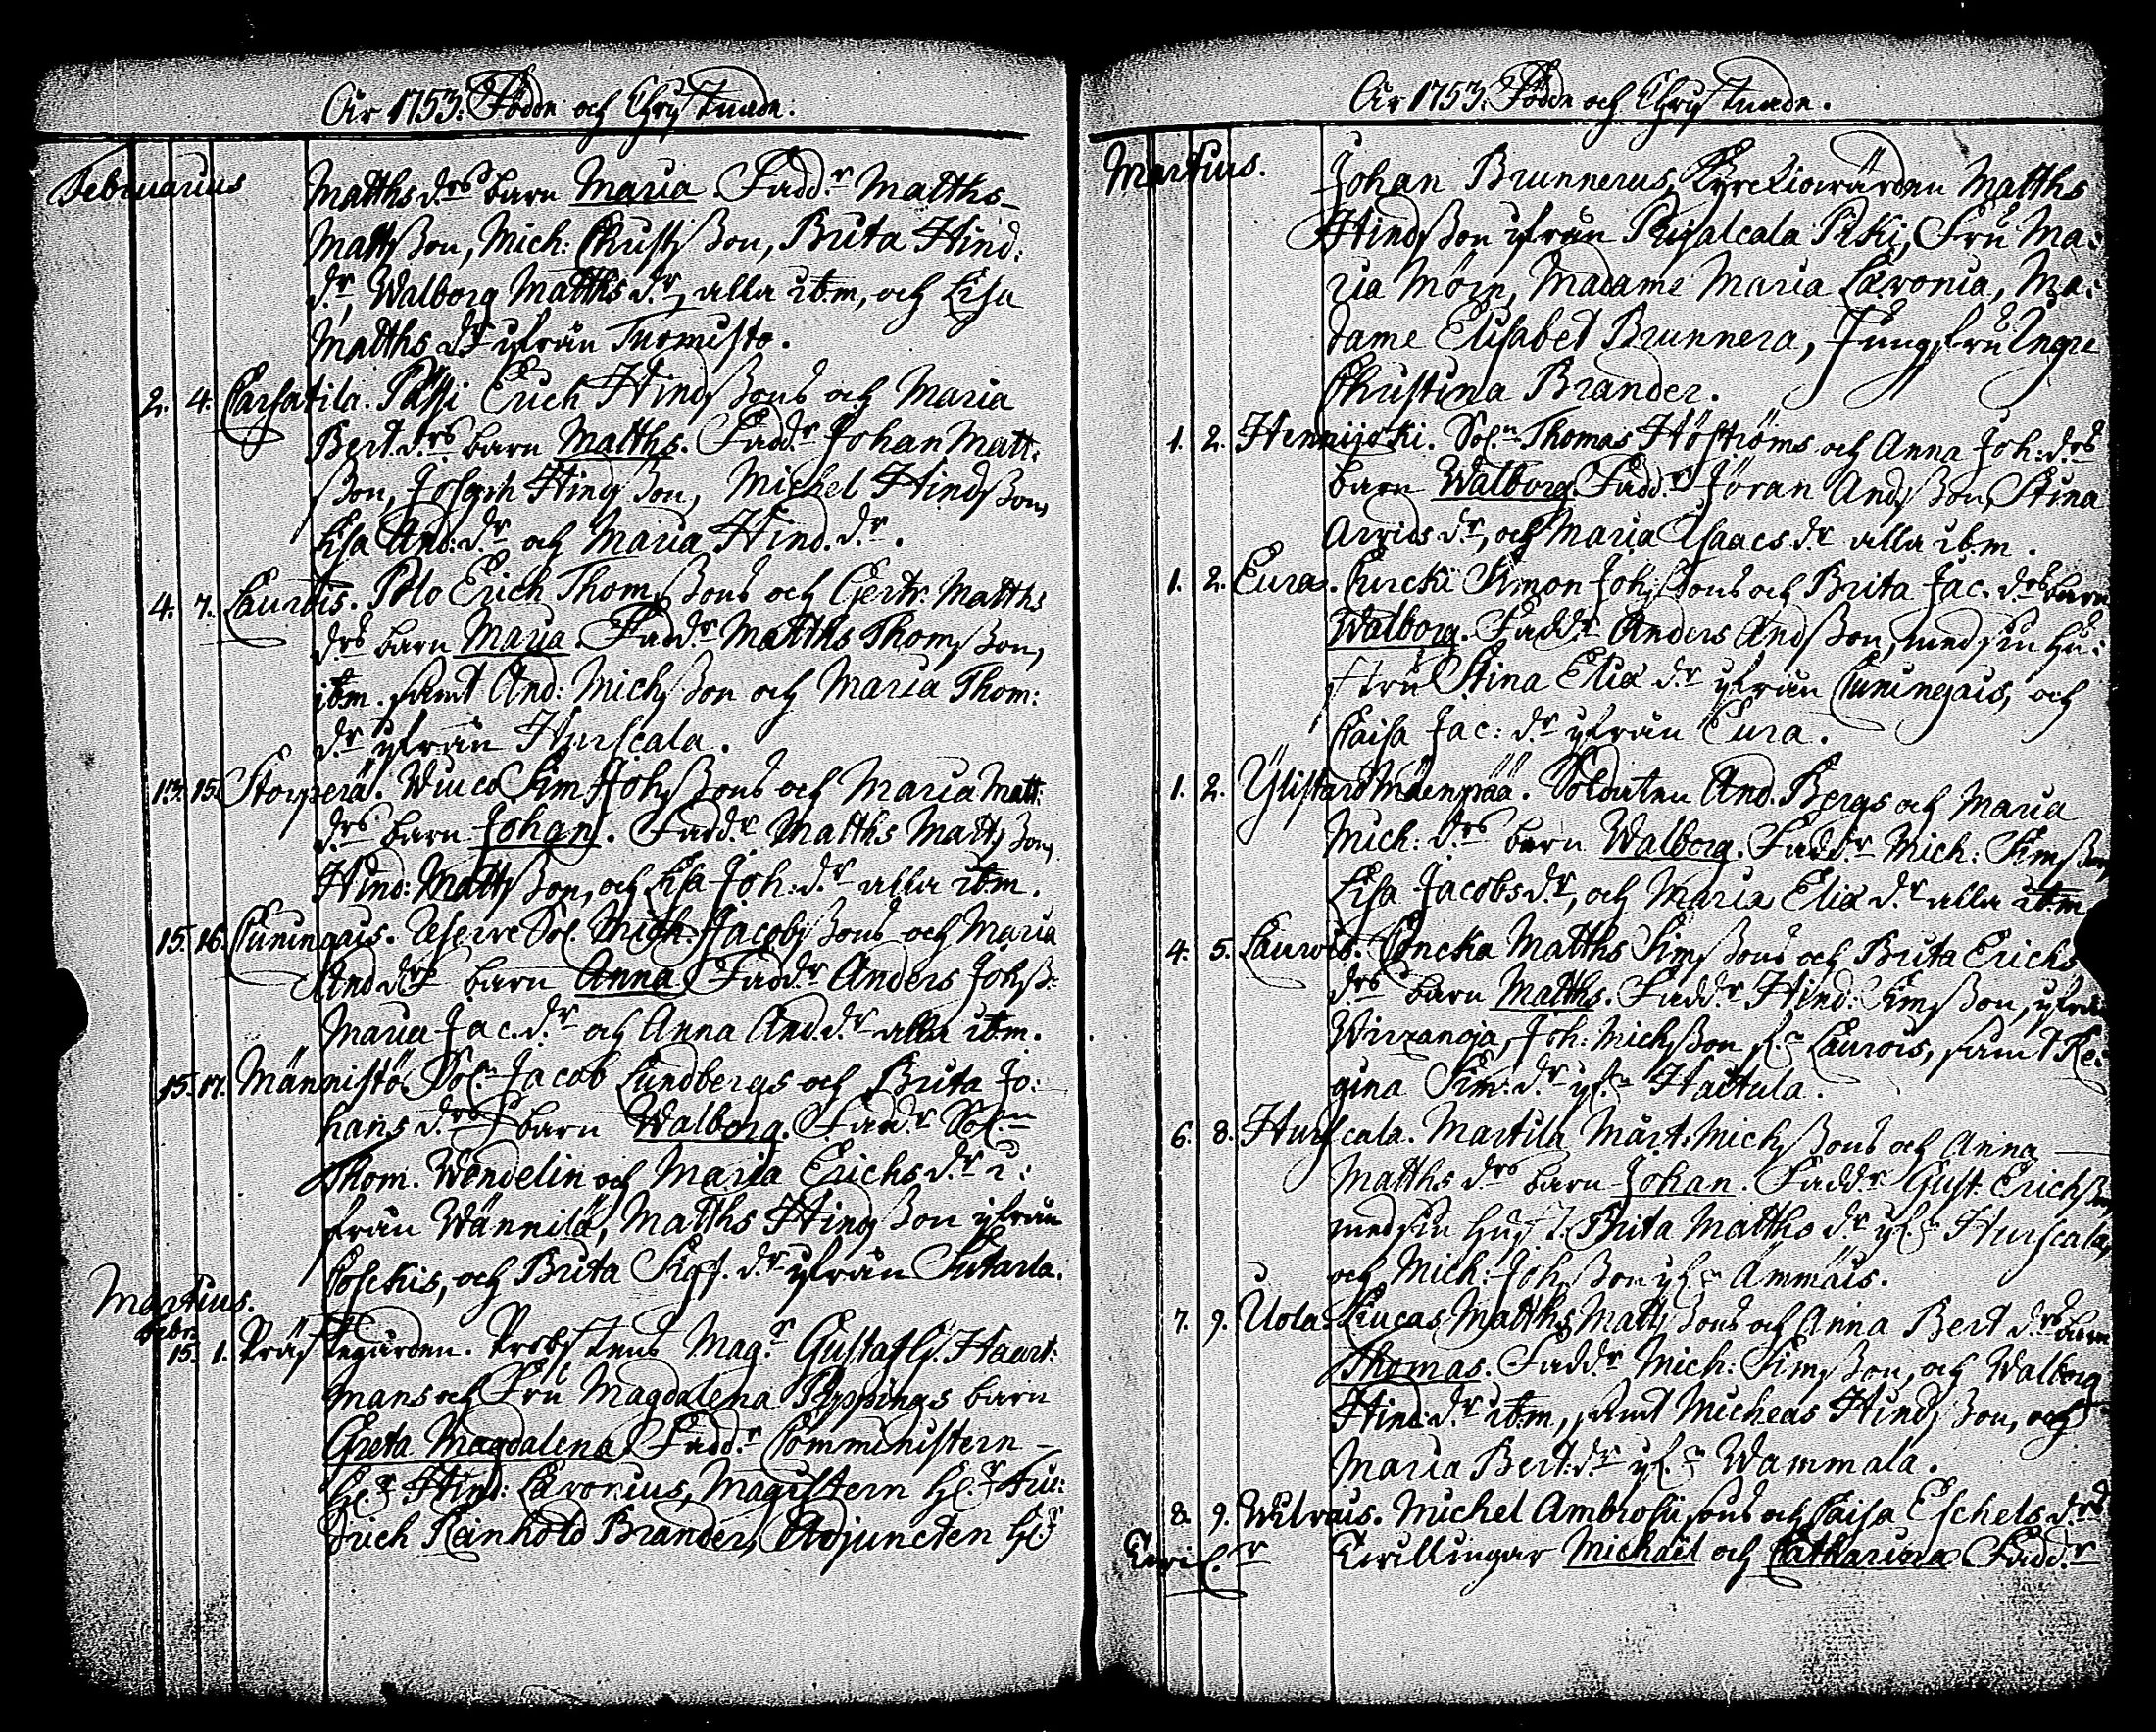 År 1753. Födde och Christnade.
Februarius
Matthsd.rs barn Maria. Fadd.r Matths
Mattsson, Mich: Christsson, Brita Hind:
d.r, Walborg Matthsd.r, alla ibm, och Lisa
Matths d.r ifrån Tuomisto.
2. 4. Carsatila. Passi Erich Hindssons och Maria
Bert.d.rs barn Matths. Fadd.r Johan Matt:
sson, Joseph Hindsson, Michel Hindsson,
Lisa And:d.r och Maria Hind.d.r.
4. 7. Laurois. Polo Erich Thomssons och Gertr. Matths
d.rs barn Maria. Fadd.r Matths Thomsson,
ibm. samt And: Michsson och Maria Thom:
d.r ifrån Hurscala.
13. 15. Storperä. Wuico Sim Johssons och Maria Matt:
d.rs barn Johan. Fadd.r Matths Mattsson,
Hind: Mattsson, och Lisa Joh:d.r alla ibm.
15. 16. Cuningais. Sol. Mich: Jacobssons och Maria
And d.rs barn Anna. Fadd.r Anders Johss:
Maria Jac.d.r och Anna And.d.r alla ibm.
15. 17. Männistö. Sol.n Jacob Lundbergs och Brita Jo:
hans d.rs barn Walborg. Fadd.r Sol.n
Thom. Wendelin och Maria Erichs d.r i:
från Wännilä, Matths Hindsson ifrån
Coskis, och Brita d.r ifrån Sutarla.
Martius.
Febr.
15. 1. Prästegården. Probstens Mag.r Gustaf Haart:
mans och Fru Magdalena Peppings barn
Greta Magdalena. Fadd.r Comministern
H.r Hind: Lavonius, Magistern H.r Frie:
drich Reinhold Brander, Adjuncten H.r
År 1753. Födde och Christnade.
Martius.
Johan Brunnerus, Kyrckiowärden Matths
Hindsson ifrån Risalcala Pirki, Fru Ma:
ria Mörn, Madame Maria Lavonia, Ma:
dame Elisabet Brunnera, Jungfru Ingre
Christina Brander.
1. 2. Hennijoki. Sol.n Thomas Höströms och Anna Joh:d.rs
barn Walborg. Fadd.r Jöran Andsson, Stina
Arvids d.r, och Maria Isaacs d.r alla ibm.
1. 2. Eura. Curcki Simon Johssons och Brita Jac. d.rs barn
Walborg. Fadd.r Anders Andsson, med sin hu:
stru Stina Eliæ d.r ifrån Cuningais, och
Caisa Jac: d.r ifrån Eura.
1. 2. Ylistaro Mäenpää. Soldaten And. Bergs och Maria
Mich: d.rs barn Walborg. Fadd.r Mich: Simsson,
Lisa Jacobsd.r, och Maria Eliæ d.r alla ibm
4. 5. Laurois. Concka Matths Simssons och Brita Erichs
d.rs barn Matths. Fadd.r Hind: Simsson, ifrån
Wirranoja, Joh: Michsson if.n Laurois, samt Re:
gina Sim:d.r if.n Hattula.
6. 8. Hurscala. Martila Mårt: Michssons och Anna
Matths d.rs barn Johan. Fadd.r Gust. Erichsson
med sin hust. Brita Matths d.r if.n Hurscala,
och Mich: Johsson if.n Ammäis.
7. 9. Uola. Lucas Matths Mattssons och Anna Bert d.rs barn
Thomas. Fadd.r Mich: Simsson, och Walborg
Hind:d.r ibm, samt Micheas Hindsson, och
Maria Bert:d.r if.n Wammala.
8. 9. Wilvais. Michel Ambrosii sons och Caisa Eschels d.rs
Twil.r Twillingar Michaël och Catharina. Fadd.r